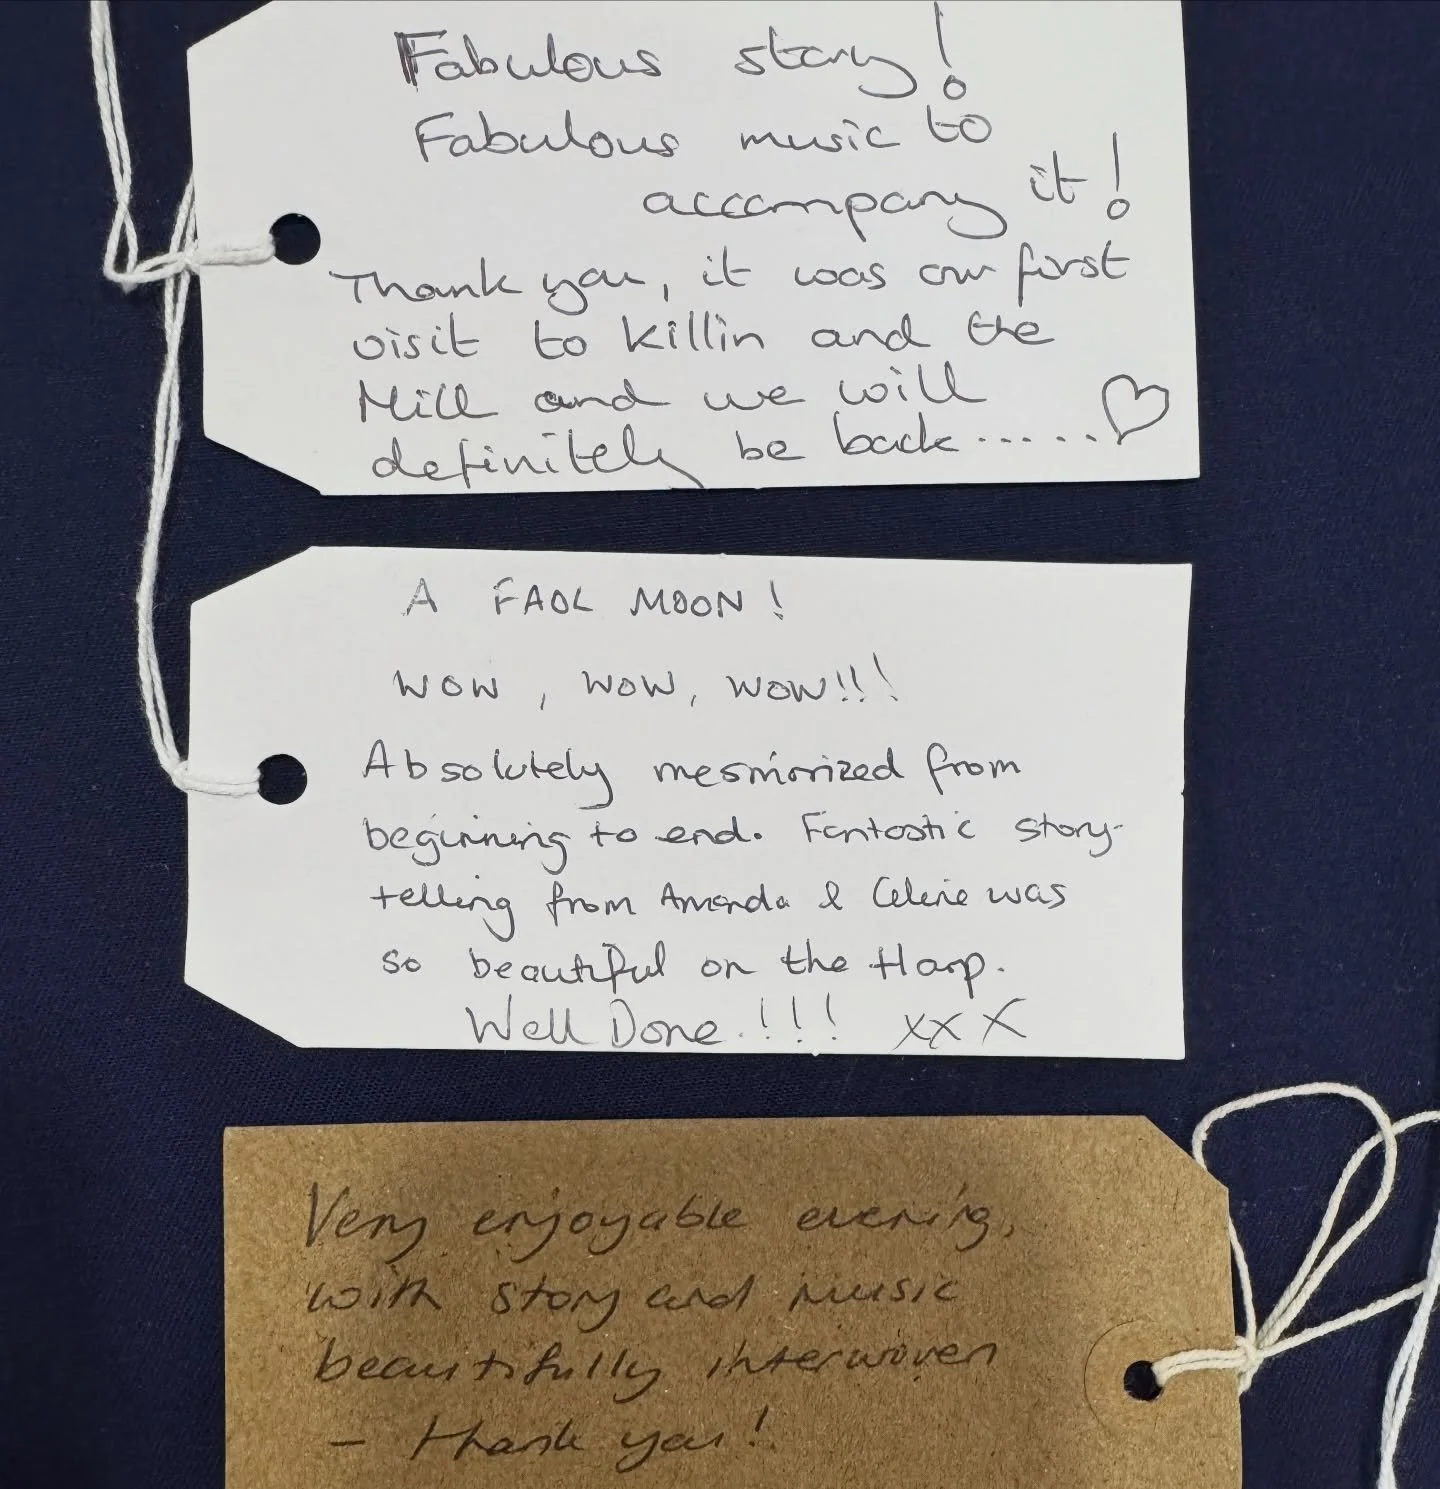 Fabulous story!
Fabulous music to
accompany it!
Thank you, it was our first
visit to Killin and the
Mill and we will
definitely be back ...... ♡
A FAOL MOON!
WOW, WOW, WOW!!!
Absolutely mesmorized from
beginning to end. Fantastic story-
telling from Amanda & Celine was
so beautiful on the Harp.
Well Done!!! xxx
Very enjoyable evening,
with story and music
beautifully interwoven
- thank you!